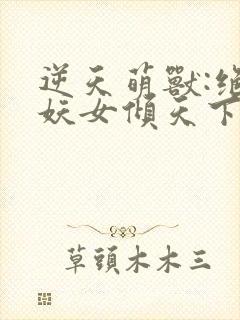 逆天萌獸:絕
妖女傾天下
草頭木木三